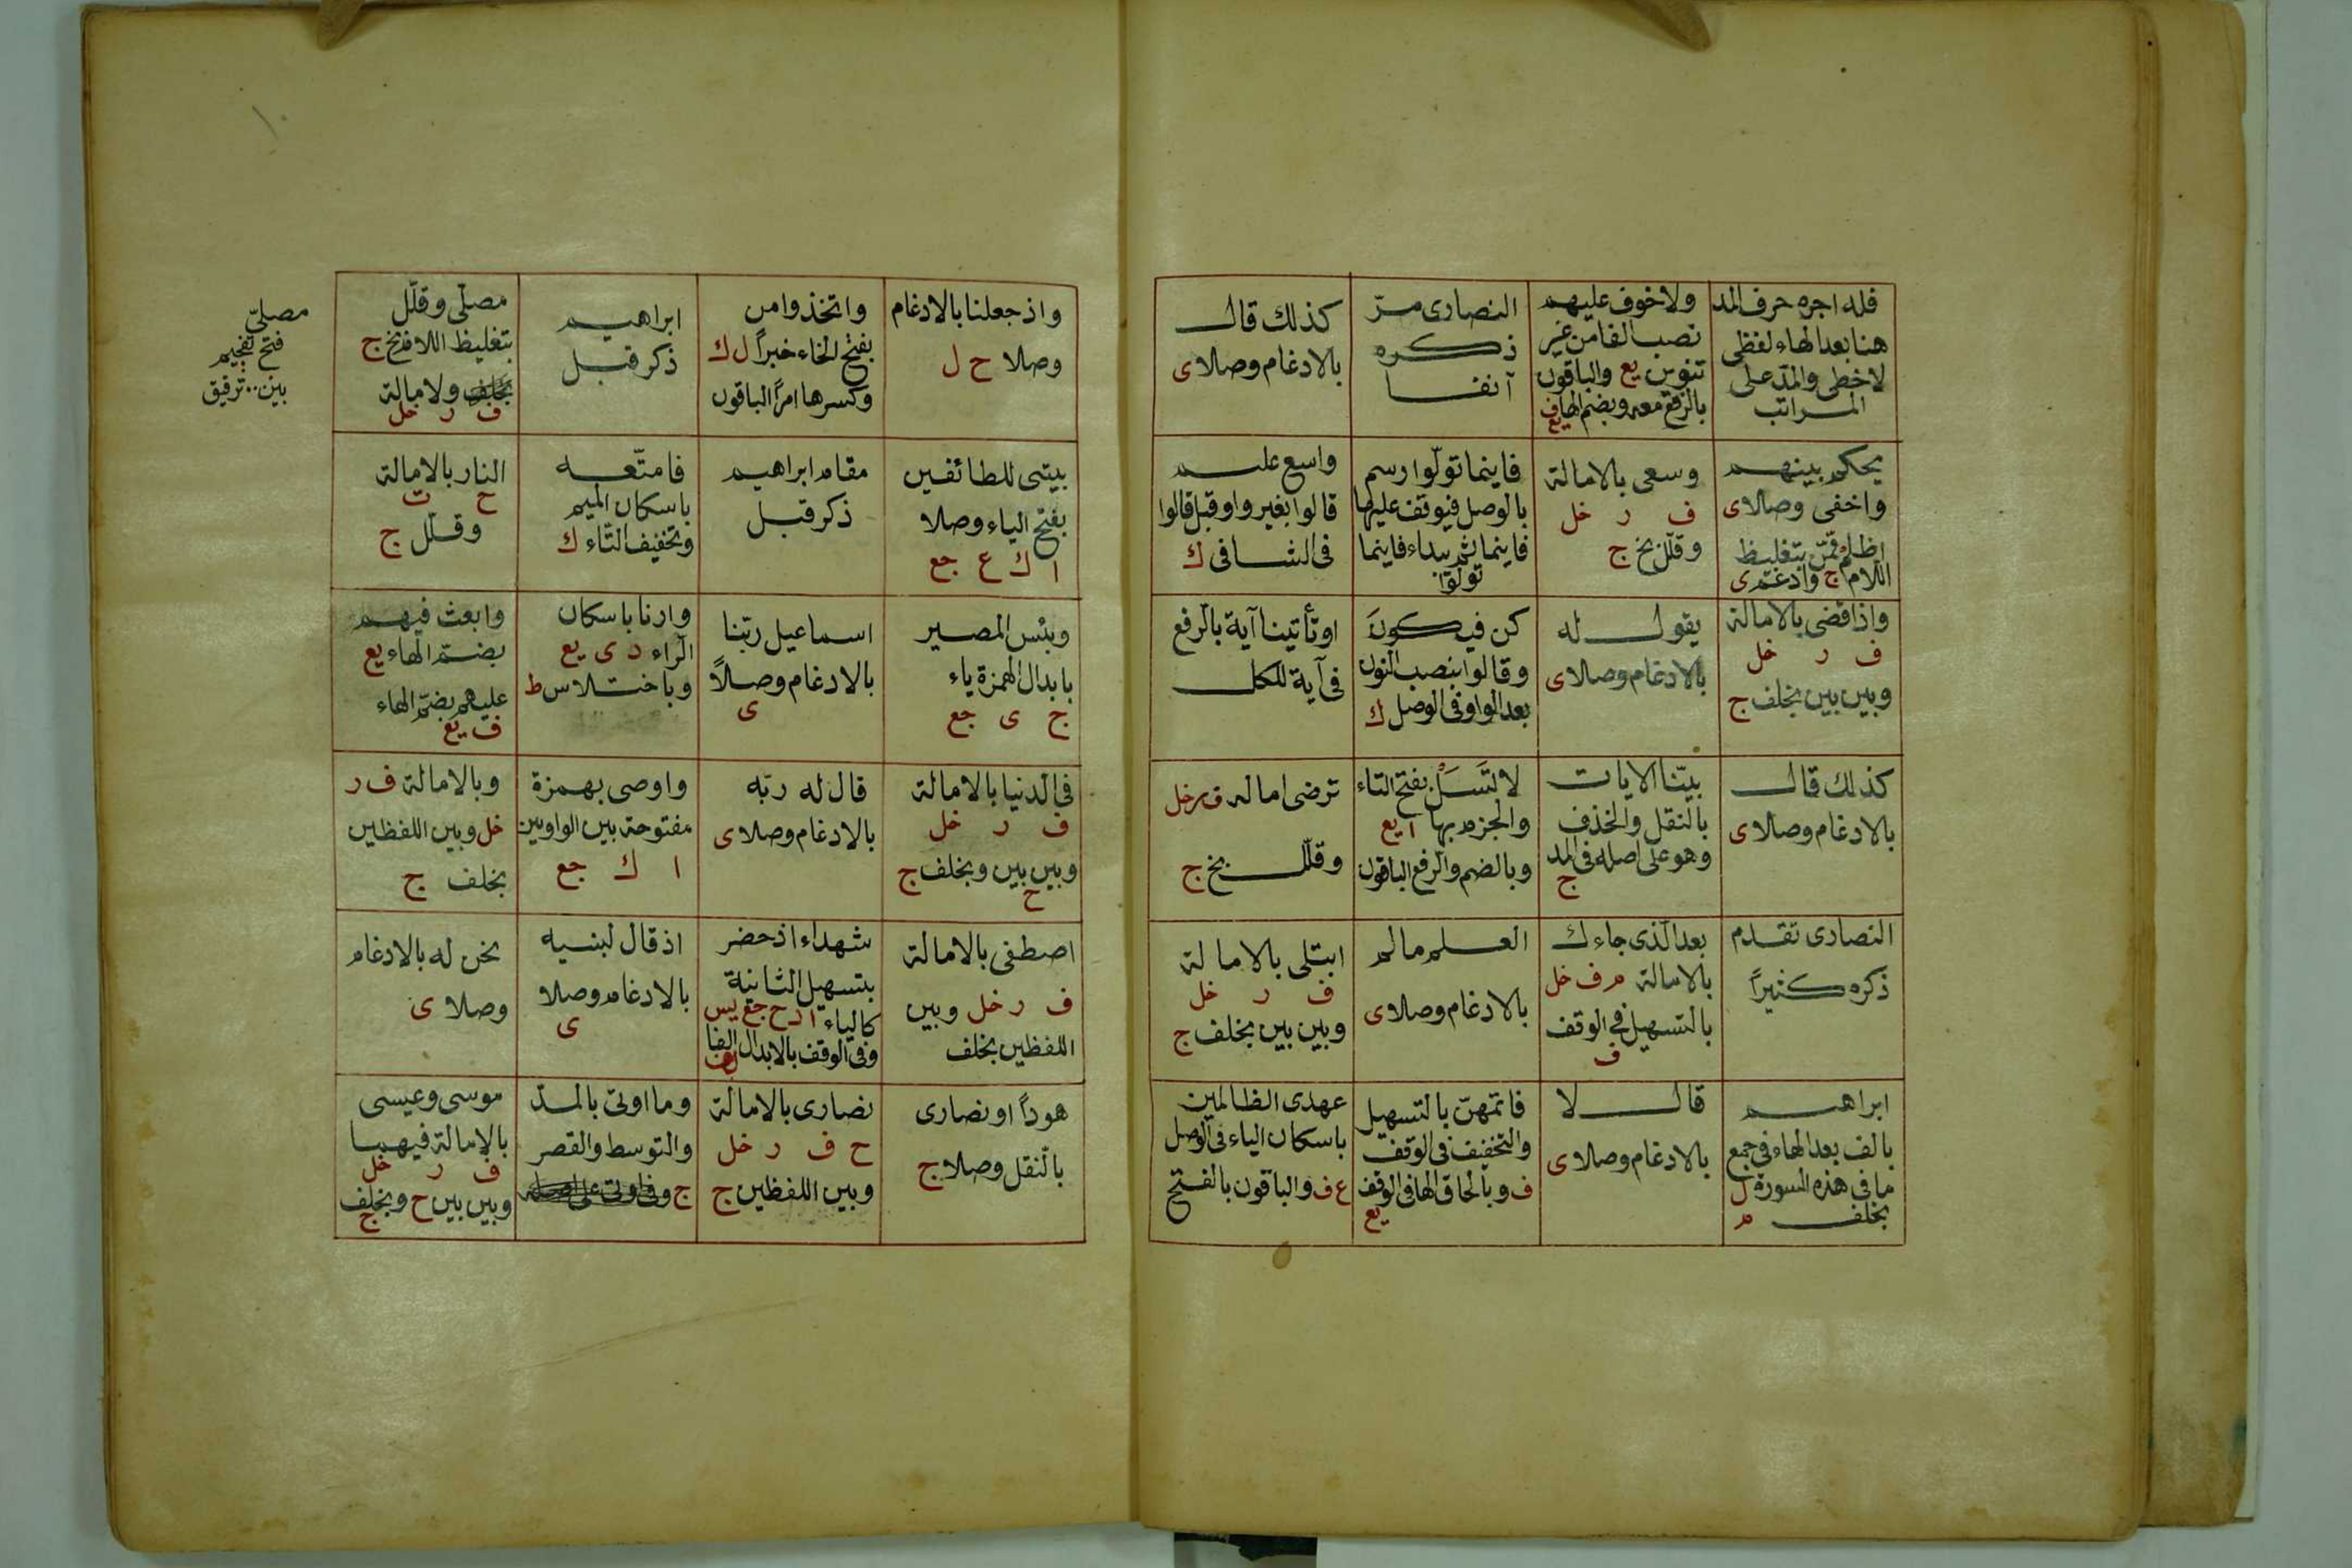 فله اجره حرف المد
هنا بعد الهاء لفظى
لا خطى والمد على
المراتب
ولا خوف عليهم
نصب الفا من غير
تنوين يع والباقون
بالرفع معه وبضم الها ف يع
النصارى مرّ
ذكره
آنفا
كذلك قال
بالادغام وصلا ى
يحكم بينهم
واخفى وصلا ى
اظلم ممّن بتغليظ
اللام ج وادغم ى
وسعى بالامالة
ف ر خل
وقلل بخ ج
فاينما تولّوا رسم
بالوصل فيوقف عليها
فاينما ثم يبداء فاينما
تولّوا
واسع عليم
قالوا بغير واو قبل قالوا
فى الشافى ك
واذا قضى بالامالة
ف ر خل
وبين بين بخلف ج
يقول له
بالادغام وصلا ى
كن فيكونَ
وقالوا بنصب النون
بعد الواو فى الوصل ك
او تأتينا آية بالرفع
فى آية للكل
كذلك قال
بالادغام وصلا ى
بيّنا الايات
بالنقل والحذف
وهو على اصله فى المد
ج
لا تَسَلْ بفتح التاء
والجزم بها ا يع
وبالضم والرفع الباقون
ترضى اماله ف ر خل
وقلل بخ ج
النصارى تقدم
ذكره كثيراً
بعد الّذى جاءك
بالامالة م ف خل
بالتسهيل فى الوقف
ف
العلم مالم
بالادغام وصلا ى
ابتلى بالامالة
ف ر خل
وبين بين بخلف ج
ابراهيم
بالف بعد الهاء فى جمع
ما فى هذه السورة ل
بخلف م
قال لا
بالادغام وصلا ى
فاتمّهنّ بالتسهيل
والتخفيف فى الوقف
ف وبالحاق الها فى الوقف
يع
عهدى الظالمين
باسكان الياء فى الوصل
ع ف والباقون بالفتح
واذ جعلنا بالادغام
وصلا ح ل
واتخذوا من
بفتح الخاء خبراً ل ك
وكسرها امراً الباقون
ابراهيم
ذكر قبل
مصلّى وقلّل
بتغليظ اللا وفتح ج
بخلف ولا مالة
ف ر خل
مصلىّ
فتح تفخيم
بين.. ترقيق
بيتى للطائفين
بفتح الياء وصلا
ا ك ع جع
مقام ابراهيم
ذكر قبل
فامتّعه
باسكان الميم
وتخفيف التاء ك
النار بالامالة
ح ت
وقلّل ج
وبئس المصير
بابدال الهمزة ياء
ج ى جع
اسماعيل ربّنا
بالادغام وصلاً
ى
وارنا باسكان
الرّاء د ى يع
وباختلاس ط
وابعث فيهم
بضم الهاء يع
عليهم بضم الهاء
ف يع
فى الدنيا بالامالة
ف ر خل
وبين بين وبخلف ج
ح
قال له ربّه
بالادغام وصلا ى
واوصى بهمزة
مفتوحة بين الواوين
ا ك جع
وبالامالة ف ر
خل وبين اللفظين
بخلف ج
اصطفى بالامالة
ف ر خل وبين
اللفظين بخلف
شهداء اذ حضر
بتسهيل الثانية
كالياء ا د ح جع يس
وفى الوقف بالابدال الفا
اذ قال لبنيه
بالادغام وصلا
ى
نحن له بالادغام
وصلا ى
هوداً او نصارى
بالنقل وصلا ج
نصارى بالامالة
ح ف ر خل
وبين اللفظين ج
وما اوتى بالمد
والتوسط والقصر
ج وفى اوتى على اصله
موسى وعيسى
بالامالة فيهما
ف ر خل
وبين بين ح وبخلف
ج